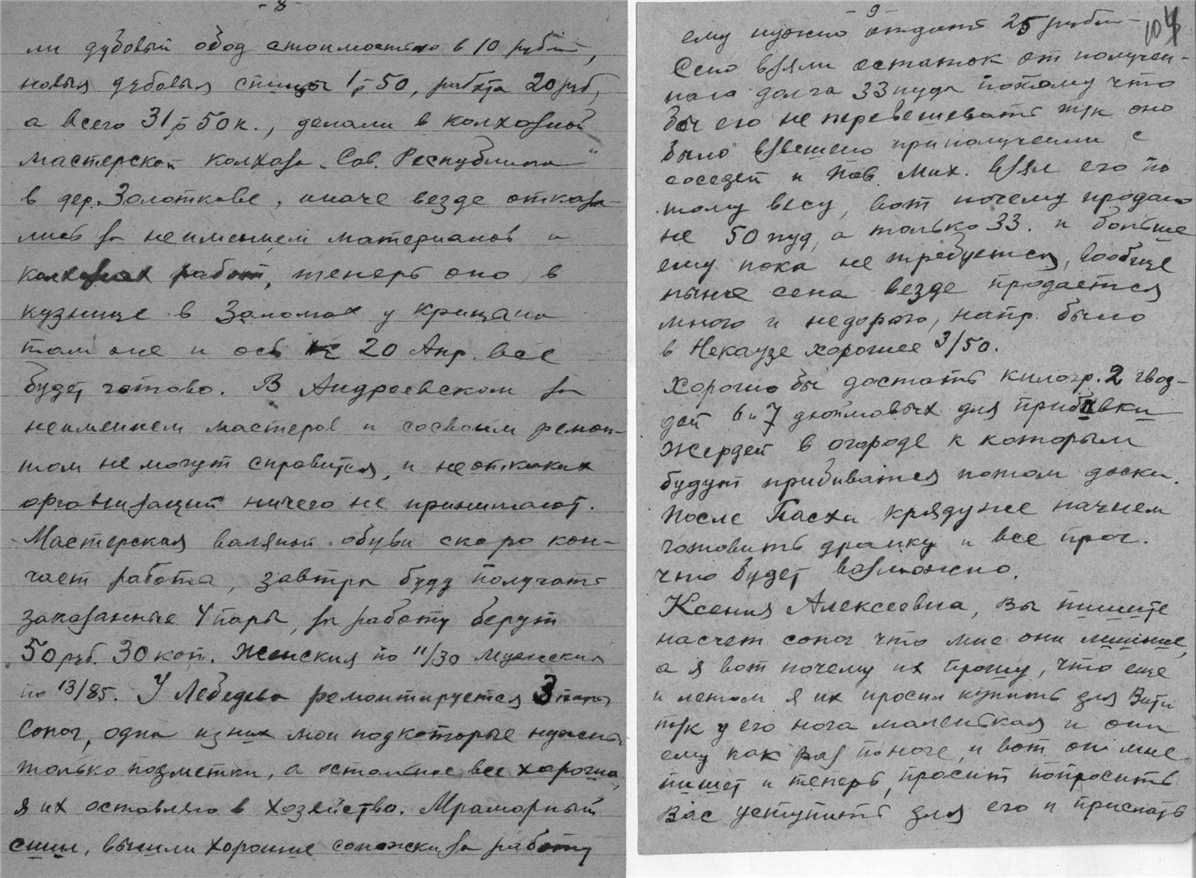 - 8 -
ли дубовый обод стоимостью в 10 рублей,
новыя дубовыя спицы 1р50, работа 20 руб,
а всего 31р50к., делали в колхозной
мастерской колхоза „Сов. Республика"
в дер. Золоткове, иначе везде отказа-
лись за неимением материалов и
колхозных работ, теперь оно в
кузнице в Заломах у Крицына
там же и ось 20 Апр. все
будет готово. В Андреевском за
неимением мастеров и сосвоим ремон-
том не могут справится, и неоткаких
организаций ничего не принимают.
Мастерская валяной обуви скоро кон-
чает работа, завтра буду получать
заказанные 4 пары, за работу берут
50 руб. 30 коп. Женския по 11/30 Мужския
по 13/85. У Лебедева ремонтируется 3 пары
Сапог, одна из них мои подкоторые нужны
только подметки, а остальное все хорошо,
я их оставляю в хозяйство. Мраморный
сшил, вышли хорошие сапожки за работу
- 9 -
104
ему нужно отдать 25 рублей
Сено взяли остаток от получен-
наго долга 33 пуда потому что
бы его не перевешивать т/к оно
было взвешено приполучении с
соседей и Пав. Мих. взял его по
тому весу, вот почему продано
не 50 пуд, а только 33. и больше
ему пока не требуется, вообще
ныне сена везде продается
много и недорого, напр. было
в Некаузе хорошее 3/50.
Хорошо бы достать килогр. 2 гвоз-
дей 6и7 дюймовых для прибивки
Жердей в огороде к которым
будут прибиватся потом доски.
После Пасхи крядуже начнем
готовить дранку и все проч.
что будет возможно.
Ксения Алексеевна, Вы пишите
насчет сапог что мне они лишние,
а я вот почему их прошу, что еще
и летом я их просил купить для Вити
т/к у его нога маленькая и они
ему как раз по ноге, и вот он мне
пишет и теперь, просит попросить
Вас уступить для его и прислать